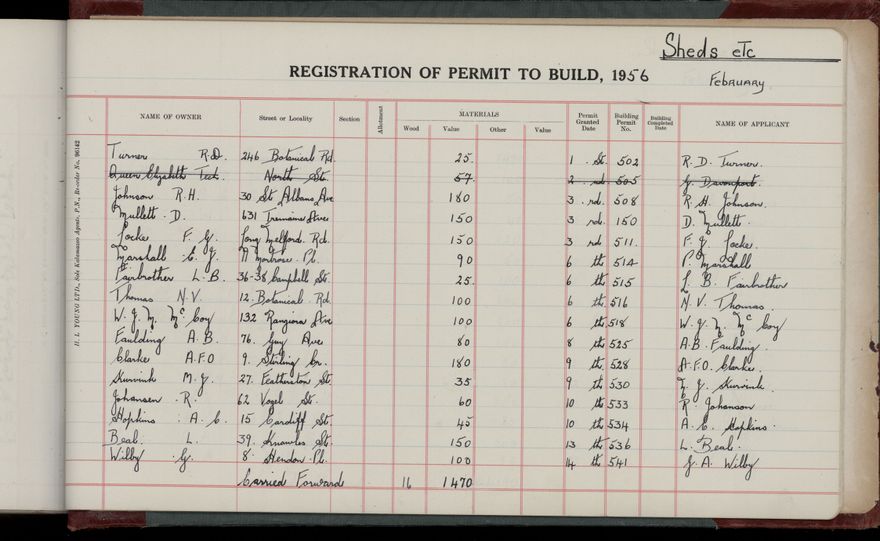 Sheds etc
REGISTRATION OF PERMIT TO BUILD, 1956
February
NAME OF OWNER Street or Locality Section Allotment MATERIALS Permit Granted Date Building Permit No. Building Completed Date NAME OF APPLICANT
Wood Value Other Value
Turner R.D. 246 Botanical Rd. 25. 1 st. 502 R. D. Turner.
Queen Elizabeth Tech. North St. 57. 2 nd 505 G. Davenport.
Johnson R.H. 30 St Albans Ave 180 3 rd. 508 R. H. Johnson.
Mullett. D. 631 Tremaine Ave. 150 3 rd. 150 D. Mullett.
Locke F. G. Long Melford. Rd. 150 3 rd. 511. F. G. Locke.
Marshall Montrose Pl. 90 6 th 514 P. Marshall
Fairbrother L. B. 36-38 Campbell St. 25. 6 th 515 L. B. Fairbrother
Thomas N.V. 12. Botanical Rd 100 6 th 516 N. V. Thomas.
W. J. M. McCoy 132 Rangiora Ave 100 6 th 518 W. J. M. McCoy
Faulding A. B. 76. Guy Ave 80 8 th 525 A. B. Faulding.
Clarke A.F.O 9. Stirling Cr. 180 9 th 528 A.F.O. Clarke.
Kurvink M. J. 27. Featherston St. 35 9 th 530 J. Kurvink.
Johansen. R. 62 Vogel St. 60 10 th 533 R. Johanson
Hopkins. A. C. 15 Cardiff St. 45 10 th 534 A. C. Hopkins.
Beal. L. 39. Knowles St. 150 13 th 536 L. Beal.
Wilby G. 8 Hendon Pl. 100 14 th 541 G. A. Wilby
Carried Forward 16 1470
H. L. YOUNG LTD., Sole Kalamazoo Agents, P.N., Re-order No. 96142